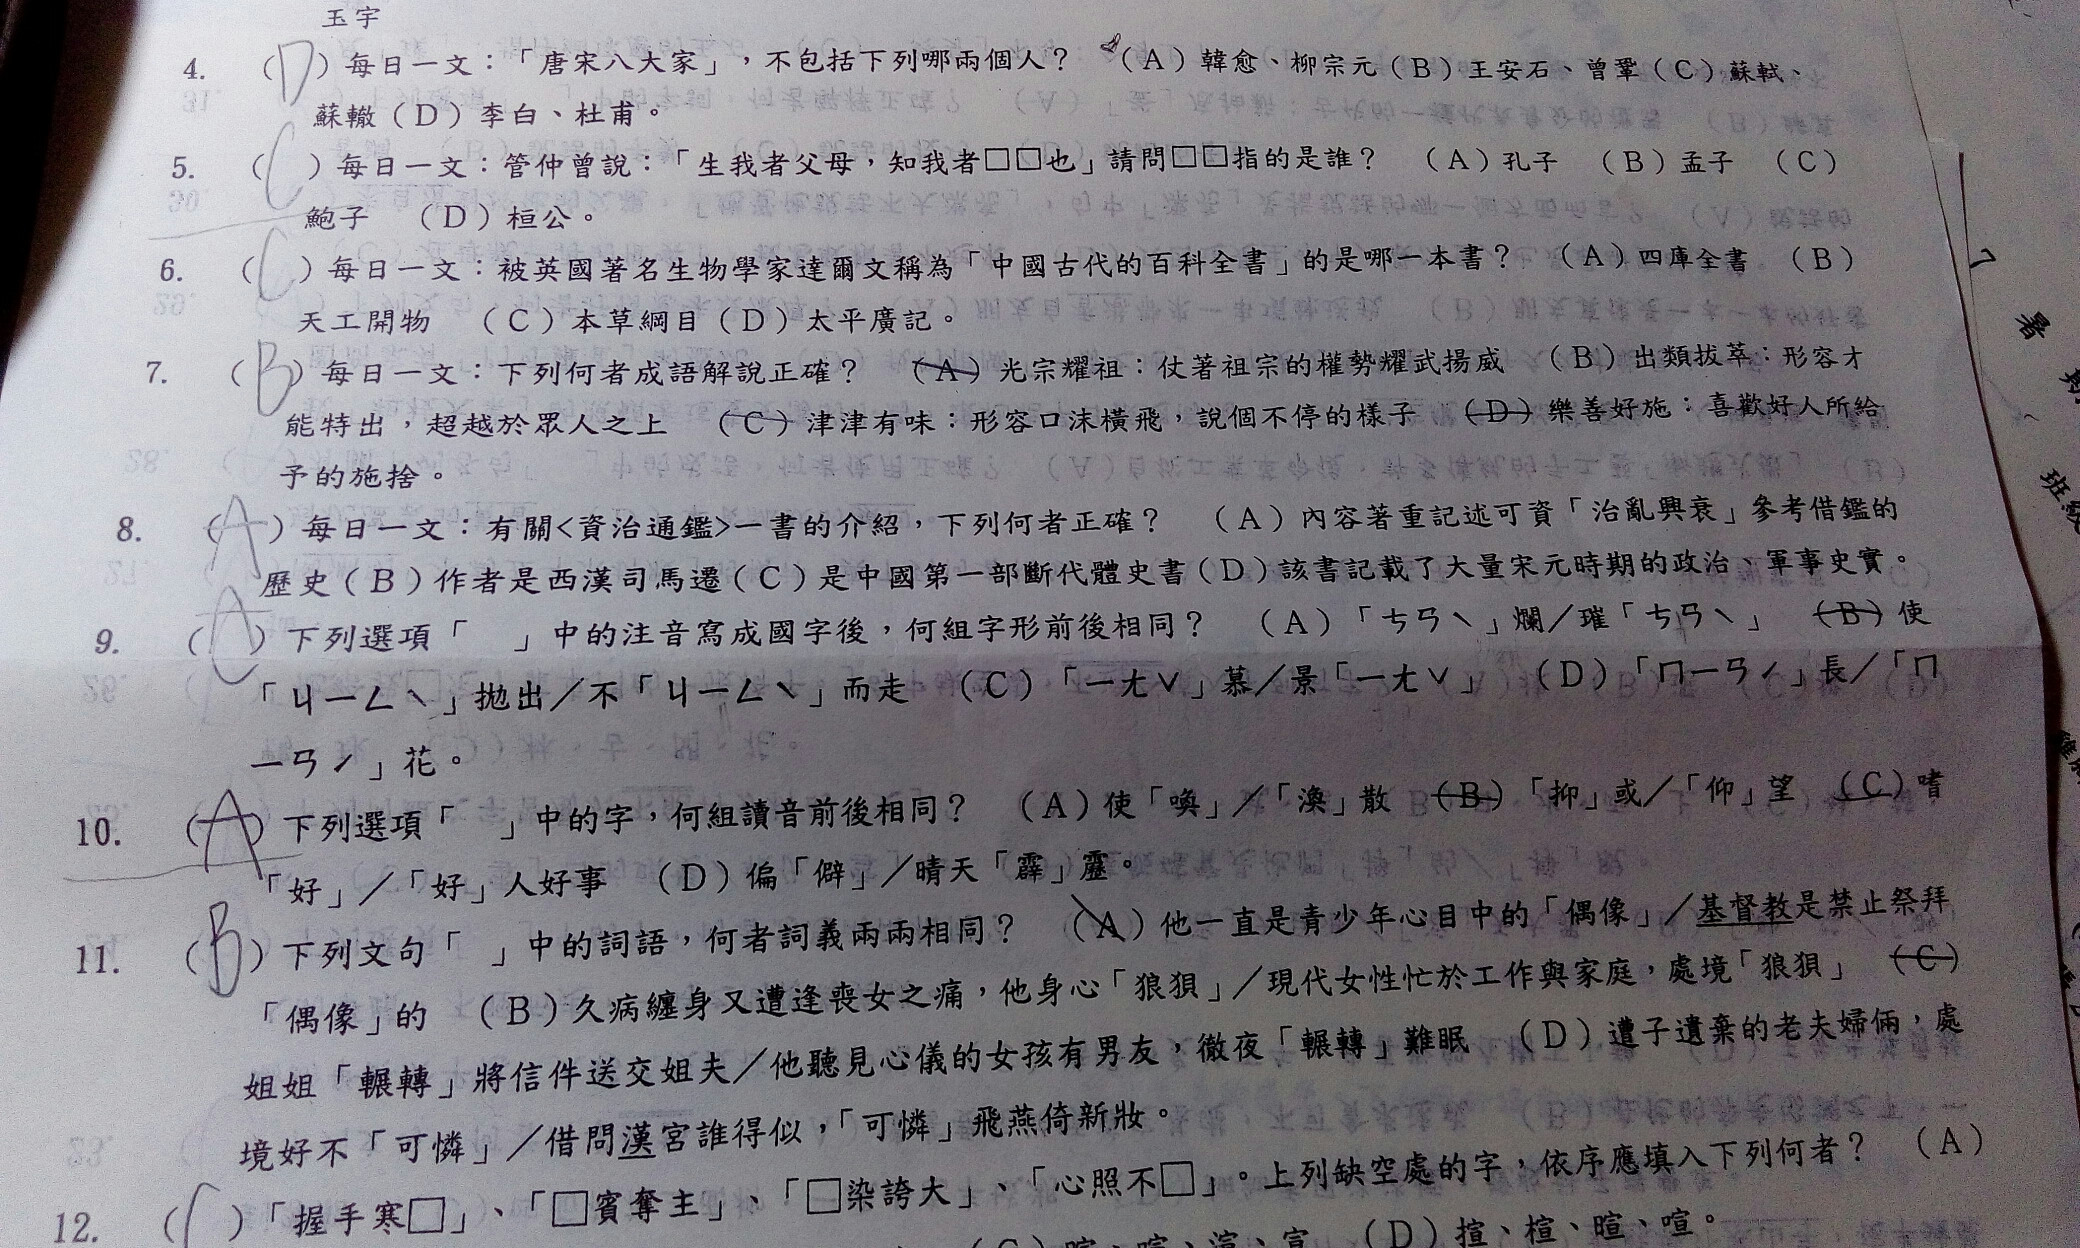 玉宇
4. (D)每日一文：「唐宋八大家」，不包括下列哪兩個人？ (A)韓愈、柳宗元(B)王安石、曾鞏(C)蘇軾、
蘇轍(D)李白、杜甫。
5. (C)每日一文：管仲曾說：「生我者父母，知我者□□也」請問□□指的是誰？ (A)孔子 (B)孟子 (C)
鮑子 (D)桓公。
6. (C)每日一文：被英國著名生物學家達爾文稱為「中國古代的百科全書」的是哪一本書？ (A)四庫全書 (B)
天工開物 (C)本草綱目(D)太平廣記。
7. (B)每日一文：下列何者成語解說正確？ (A)光宗耀祖：仗著祖宗的權勢耀武揚威 (B)出類拔萃：形容才
能特出，超越於眾人之上 (C)津津有味：形容口沫橫飛，說個不停的樣子 (D)樂善好施：喜歡好人所給
予的施捨。
8. (A)每日一文：有關<資治通鑑>一書的介紹，下列何者正確？ (A)內容著重記述可資「治亂興衰」參考借鑑的
歷史(B)作者是西漢司馬遷(C)是中國第一部斷代體史書(D)該書記載了大量宋元時期的政治、軍事史實。
9. (A)下列選項「 」中的注音寫成國字後，何組字形前後相同？ (A)「ㄘㄢˋ」爛／璀「ㄘㄢˋ」 (B)使
「ㄐㄧㄥˋ」拋出／不「ㄐㄧㄥˋ」而走 (C)「ㄧㄤˇ」慕／景「ㄧㄤˇ」 (D)「ㄇㄧㄢˊ」長／「ㄇ
ㄧㄢˊ」花。
10. (A)下列選項「 」中的字，何組讀音前後相同？ (A)使「喚」／「渙」散 (B)「抑」或／「仰」望 (C)嗜
「好」／「好」人好事 (D)偏「僻」／晴天「霹」靂。
11. (B)下列文句「 」中的詞語，何者詞義兩兩相同？ (A)他一直是青少年心目中的「偶像」／基督教是禁止祭拜
「偶像」的 (B)久病纏身又遭逢喪女之痛，他身心「狼狽」／現代女性忙於工作與家庭，處境「狼狽」 (C)
姐姐「輾轉」將信件送交姐夫／他聽見心儀的女孩有男友，徹夜「輾轉」難眠 (D)遭子遺棄的老夫婦倆，處
境好不「可憐」／借問漢宮誰得似，「可憐」飛燕倚新妝。
12. ( )「握手寒□」、「□賓奪主」、「□染誇大」、「心照不□」。上列缺空處的字，依序應填入下列何者？ (A)
(C)暄、喧、渲、宣 (D)揎、楦、暄、喧。
班級